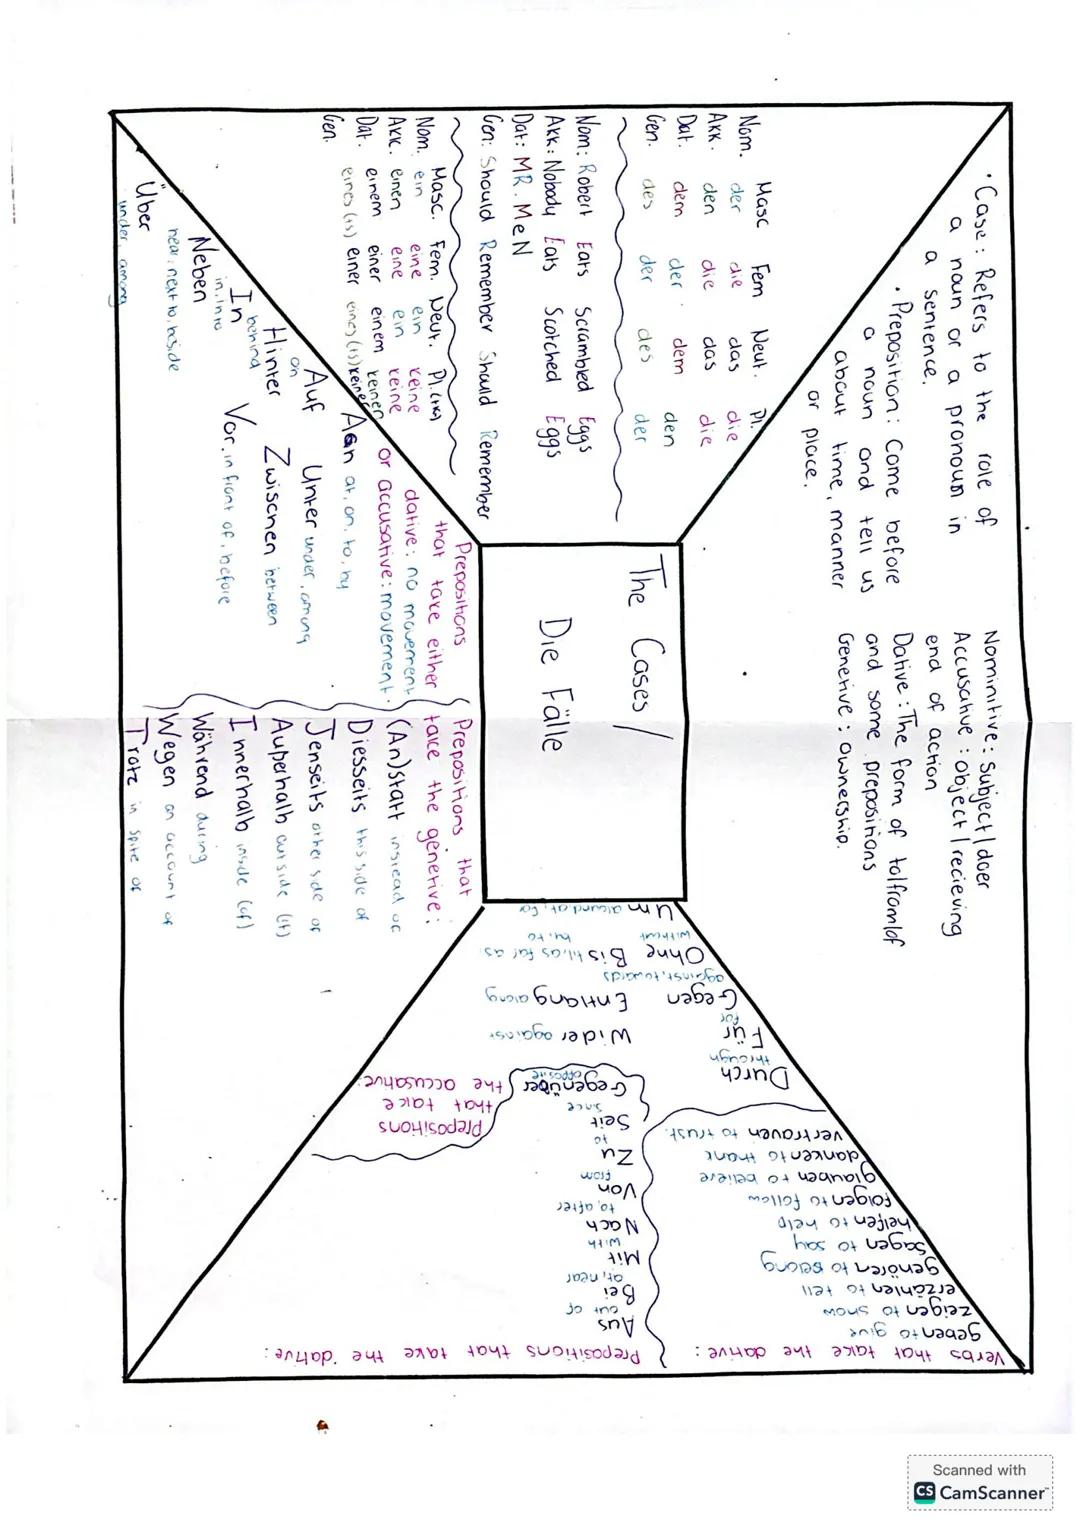 • Case: Refers to the role of
a noun or a pronoun in
a sentence.
• Preposition: Come before
a noun and tell us
about time, manner
or place.
Nominitive: Subject/doer
Accusative: object/recieving
end of action
Dative: The form of to/from/of
and some prepositions
Genetive: ownership.
Masc Fem Neut. Pl.
Nom. der die das die
Akk. den die das die
Dat. dem der dem den
Gen. des der des der
Nom: Robert Eats Scrambled Eggs
Akk: Nobody Eats Scotched Eggs
Dat: MR. MeN
Gen: Should Remember Should Remember
Masc. Fem. Neut. Pl.
Nom. ein eine ein keine
Akk. einen eine ein keine
Dat. einem einer einem keinen
Gen. eines (es) einer eines (es) keiner
The Cases/
Die Fälle
Prepositions
that take either
dative: no movement
or accusative: movement.
An at, on, to, by
Auf
on
Unter under, among
Hinter
behind
Zwischen between
In
in, into
Vor. in front of, before
Neben
near, next to, beside
Über
under, among
Prepositions that
take the genetive:
(An)statt instead of
Diesseits this side of
Jenseits other side of
Außerhalb outside (of)
Innerhalb inside (of)
Während during
Wegen on account of
Trotz in spite of
Verbs that take the dative:
geben to give
zeigen to show
erzählen to tell
gehören to belong
sagen to say
helfen to help
folgen to follow
glauben to believe
danken to thank
vertrauen to trust.
Prepositions that take the dative:
Aus
out of
Bei
at, near
Mit
with
Nach
to, after
Von
from
Zu
to
Seit
since
Gegenüber
opposite
Prepositions
that take
the accusative:
Durch
through
Für
for
Wider against
Gegen
against, towards
Entlang along
Ohne
without
Bis til, as far as
by, to
Um around, at, for
Scanned with
CS CamScanner